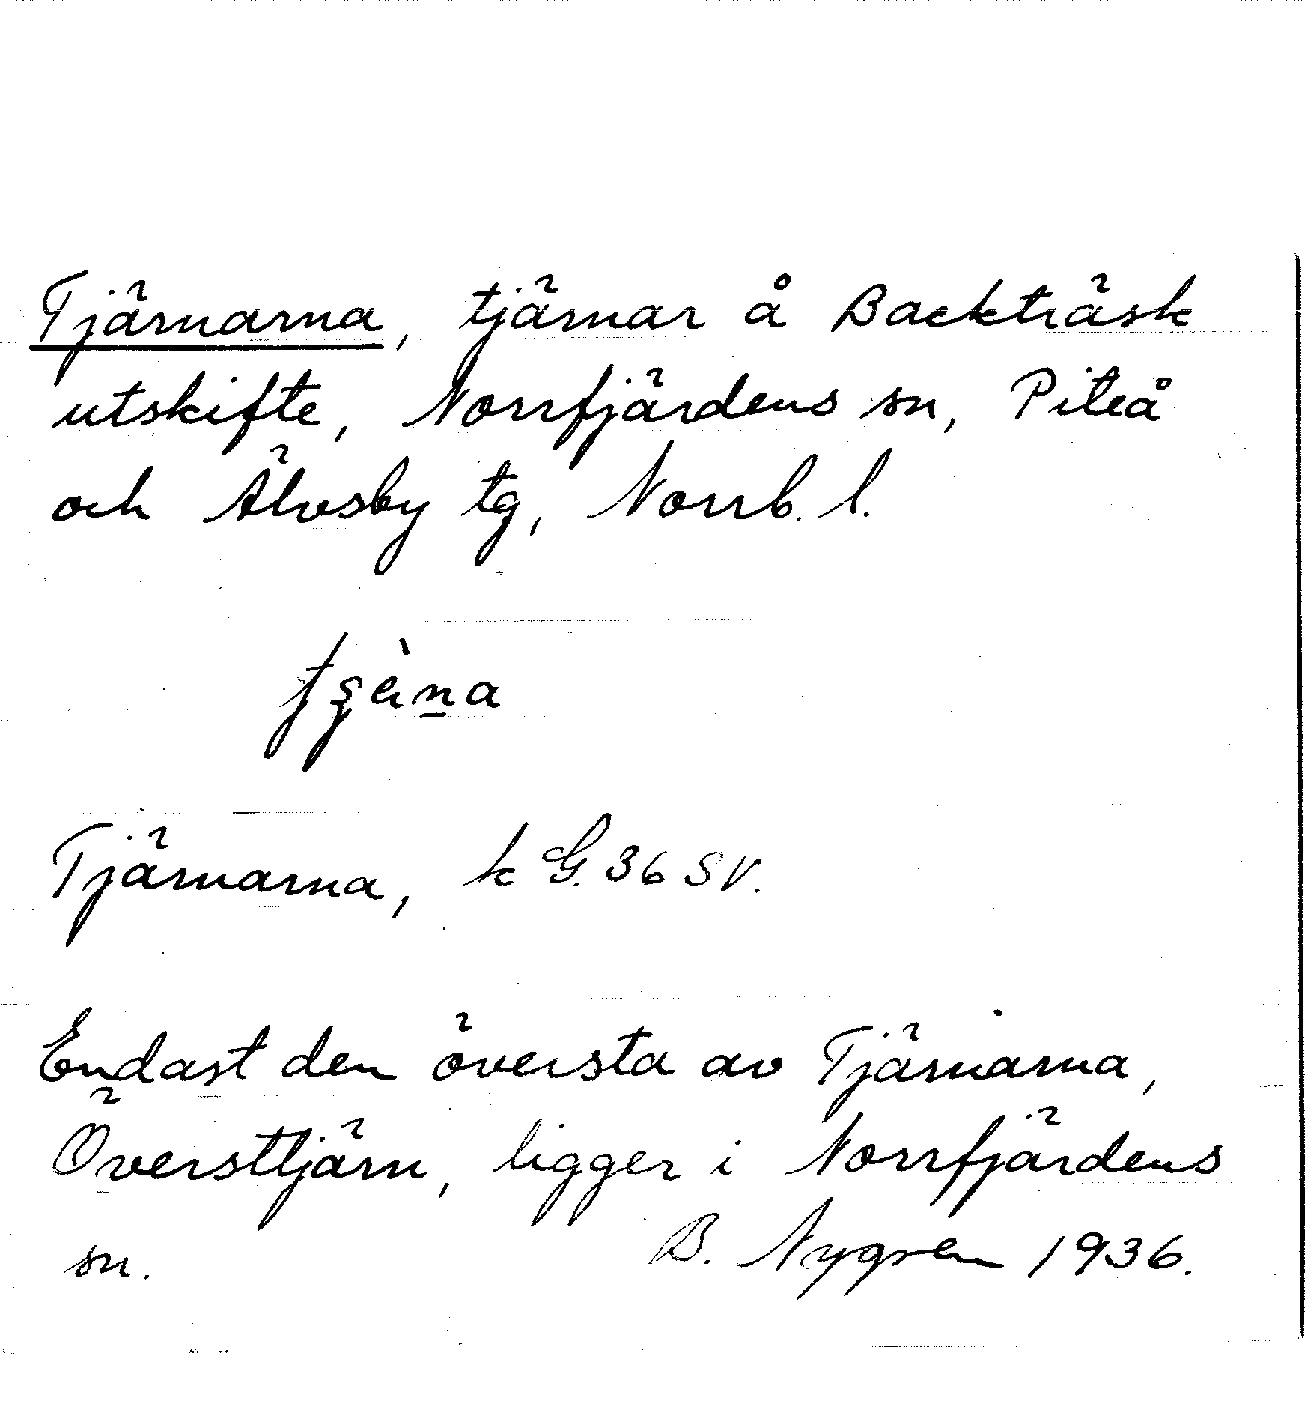 Tjärnarna, tjärnar å Backträsk
utskifte, Norrfjärdens sn, Piteå
och Älvsby tg, Norrb. l.
Tjärnarna, k G. 36 SV.
Endast den översta av Tjärnarna,
Översttjärn, ligger i Norrfjärdens
sn. B. Nygren 1936.